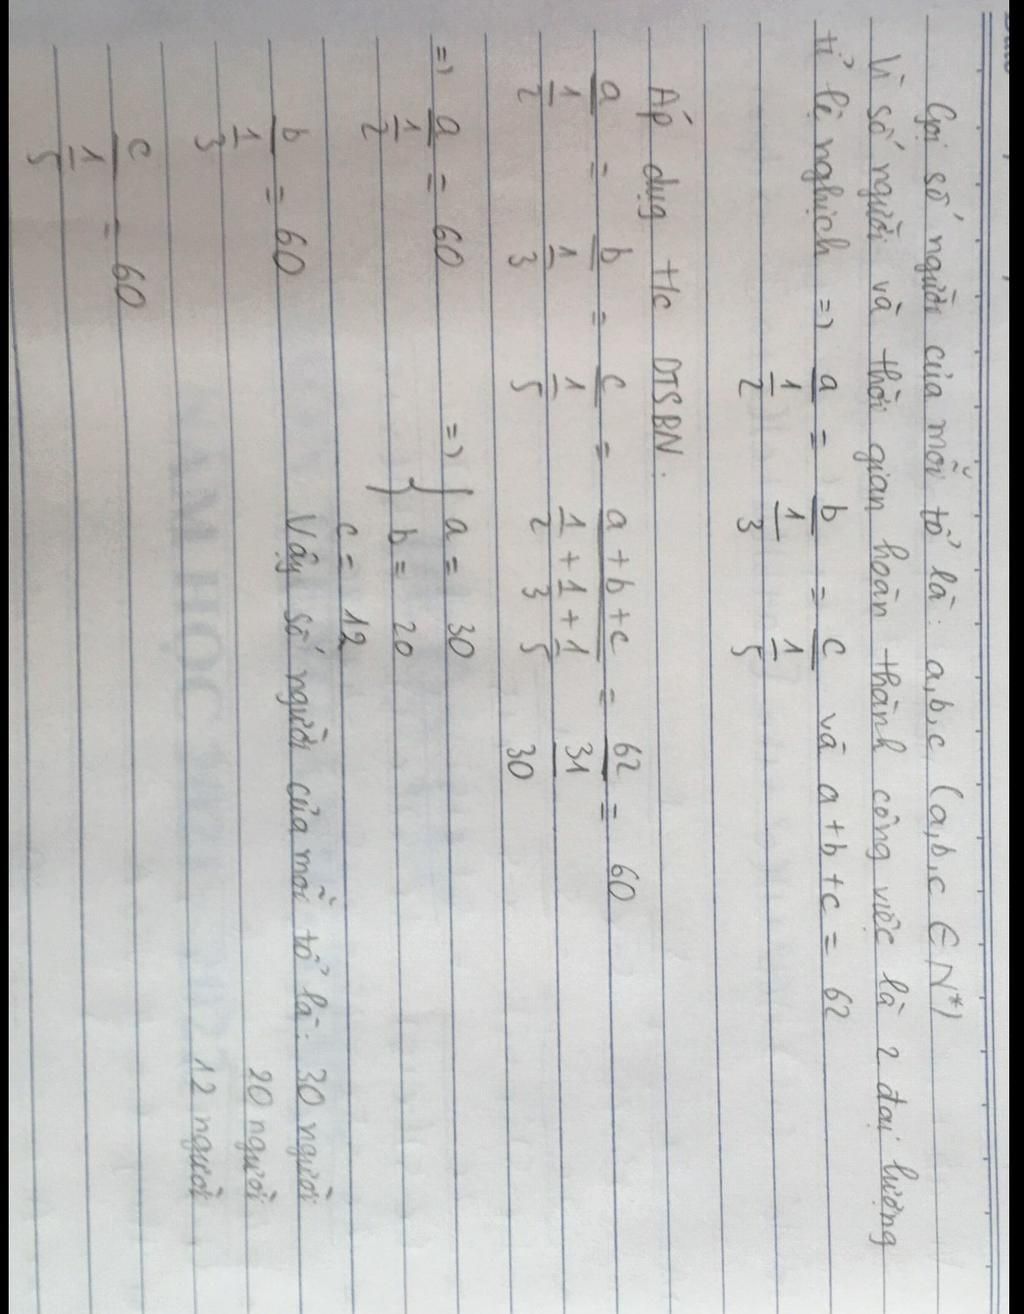 Gọi số người của mỗi tổ là: a,b,c (a,b,c ∈ N*)
Vì số người và thời gian hoàn thành công việc là 2 đại lượng
tỉ lệ nghịch => a/(1/2) = b/(1/3) = c/(1/5) và a+b+c = 62
Áp dụg t/c DTSBN.
a/(1/2) = b/(1/3) = c/(1/5) = (a+b+c)/(1/2+1/3+1/5) = 62/(31/30) = 60
=> a/(1/2) = 60
b/(1/3) = 60
c/(1/5) = 60
=> { a = 30
b = 20
c = 12
Vậy số người của mỗi tổ là: 30 người
20 người
12 người